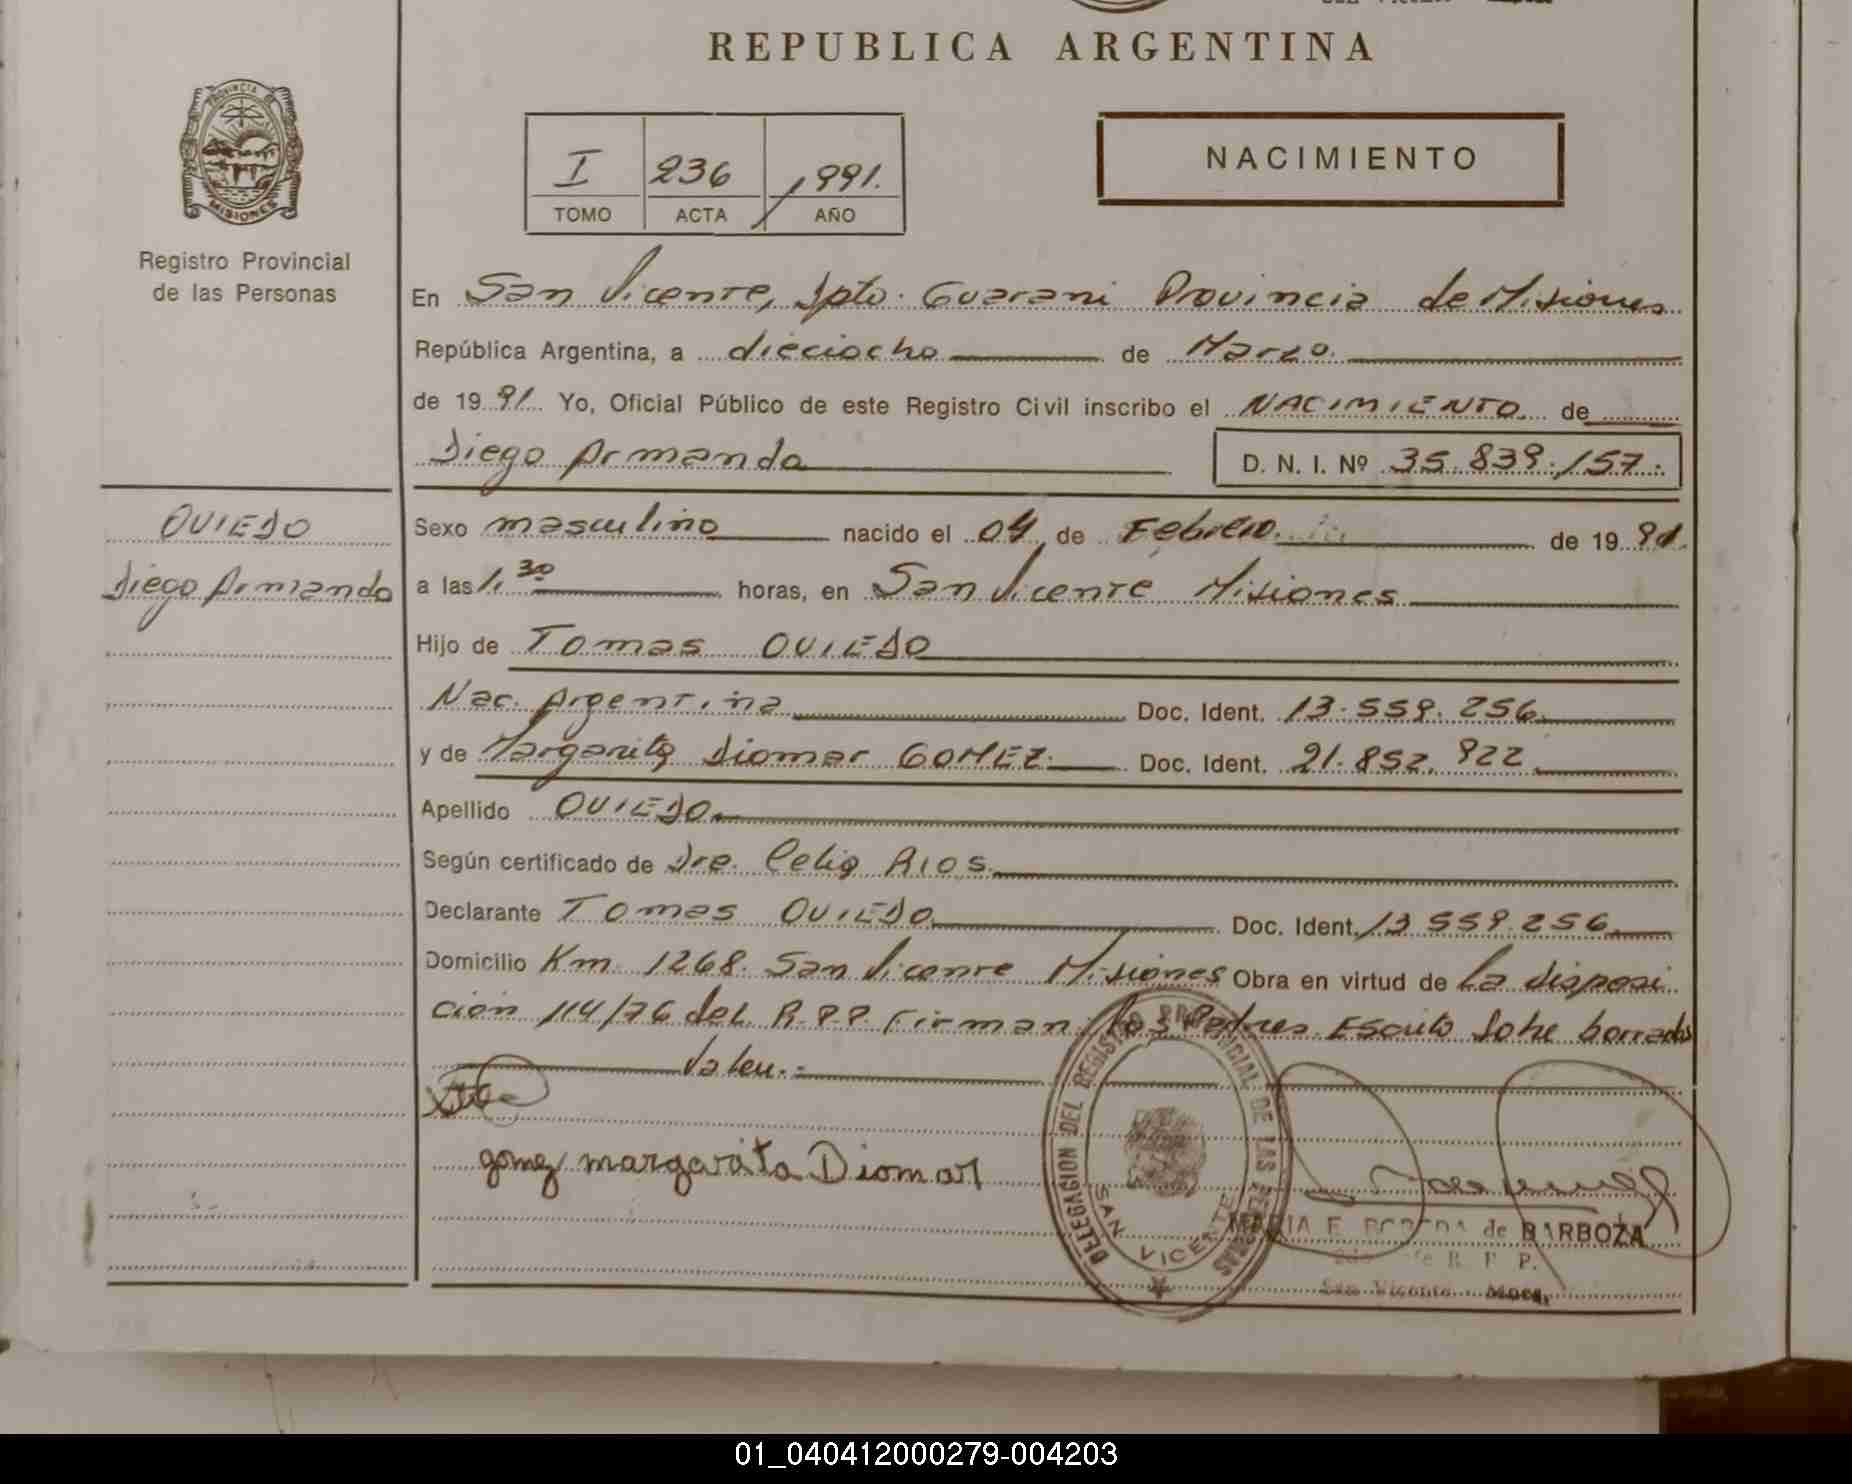 REPUBLICA ARGENTINA
PROVINCIA DE
MISIONES
Registro Provincial
de las Personas
I 236 1991.
TOMO ACTA AÑO
NACIMIENTO
En San Vicente, Dpto. Guarani Provincia de Misiones
República Argentina, a dieciocho de Marzo.
de 1991. Yo, Oficial Público de este Registro Civil inscribo el NACIMIENTO de
Diego Armando D. N. I. Nº 35.839.157.
OVIEDO
Diego Armando
Sexo masculino nacido el 04 de Febrero. de 1991.
a las 1,30 horas, en San Vicente Misiones
Hijo de Tomas OVIEDO
Nac. Argentina Doc. Ident. 13.559.256
y de Margarita Diomar GOMEZ. Doc. Ident. 21.852.922
Apellido OVIEDO
Según certificado de Dra. Celia RIOS.
Declarante Tomas OVIEDO Doc. Ident. 13 559.256
Domicilio Km 1268. San Vicente Misiones Obra en virtud de La disposi
ción 114/76 del R.P.P. Firman los Padres. Escrito Sobre borrados
Valen.-
gomez margarita Diomar
DELEGACION DEL REGISTRO PROVINCIAL DE LAS PERSONAS
SAN VICENTE
MARIA E. de BARBOZA
R. P. P.
San Vicente Mnes.
01_040412000279-004203